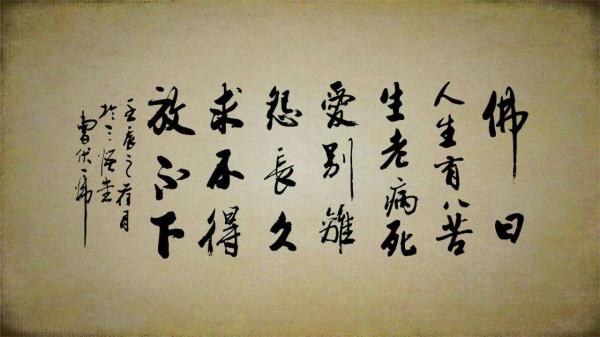 佛曰
人生有八苦
生老病死
愛別離
怨長久
求不得
放不下
壬辰之荷月
於三悟堂
曹伏虎